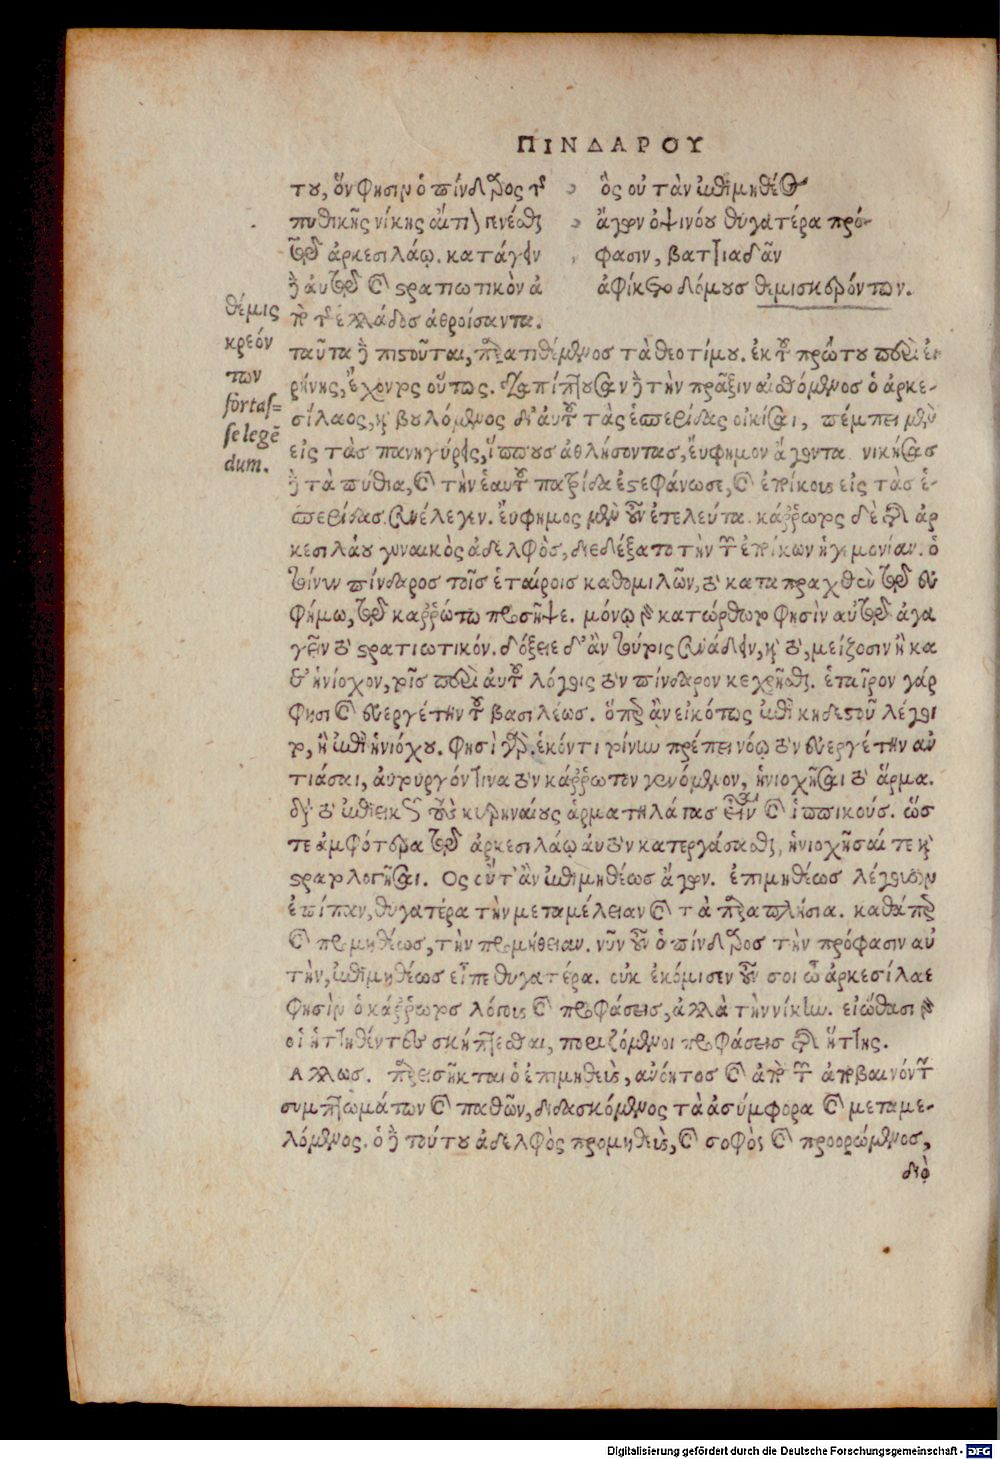 ΠΙΝΔΑΡΟΥ
του, ὅν φησιν ὁ πίνδαρος τῆς
πυθικῆς νίκης αἴτιον γενέσθαι
τῷ ἀρκεσιλάῳ. κατάγειν
δὲ αὐτῷ καὶ στρατιωτικὸν ἀ
πὸ τῆς ἑλλάδος ἀθροίσαντα.
ὃς οὐ τὰν ἐπιμηθέος
ἄγων ὀψινόου θυγατέρα πρό-
φασιν, βαττιαδᾶν
ἀφίκετο δόμους θεμισκρεόντων.
θέμις
κρεόν
των
fortas=
se legē
dum.
ταῦτα δὲ πιστοῦται, παρατιθέμενος τὰ θεοτίμου. ἐκ τοῦ πρώτου περὶ κυ
ρήνης, ἔχοντος οὕτως. διαπίπτουσαν δὲ τὴν πρᾶξιν αἰσθόμενος ὁ ἀρκε-
σίλαος, καὶ βουλόμενος δι' αὐτοῦ τὰς ἑσπερίδας οἰκίσαι, πέμπει μὲν
εἰς τὰς πανηγύρεις, ἵππους ἀθλήσοντας, εὔφημον ἄγοντα. νικήσας
δὲ τὰ πύθια, καὶ τὴν ἑαυτοῦ πατρίδα ἐστεφάνωσε, καὶ ἐποίκους εἰς τὰς ἑ-
σπερίδας συνέλεγεν. εὔφημος μὲν οὖν ἐτελεύτα. κάρρωτος δὲ ἀρ
κεσιλάου γυναικὸς ἀδελφὸς, διεδέξατο τὴν τῶν ἐποίκων ἡγεμονίαν. ὁ
τοίνυν πίνδαρος τοῖς ἑταίροις καθομιλῶν, τὸ καταπραχθὲν τῷ εὐ
φήμῳ, τῷ καρρώτῳ προσῆψε. μόνῳ γὰρ κατώρθωτο φησὶν αὐτῷ ἀγα
γεῖν τὸ στρατιωτικόν. δόξειε δ' ἂν τούτοις συνᾴδειν, καὶ τὸ, μείζοσιν ἢ κα
θ' ἡνίοχον, τοῖς περὶ αὐτοῦ λόγοις τὸν πίνδαρον κεχρῆσθαι. ἑταῖρον γάρ
φησι καὶ εὐεργέτην τοῦ βασιλέως. ὅπερ ἂν εἰκότως ἐπὶ κηδεστοῦ λέγοι
το, ἢ ἐπὶ ἡνιόχου. φησὶ γὰρ. ἑκόντι τοίνυν πρέπει νόῳ τὸν εὐεργέτην αὐ
τιάσαι, αὐτουργόν τινα τὸν κάρρωτον γενόμενον, ἡνιοχῆσαι τὸ ἅρμα.
διὰ τὸ ἐπιεικῶς τοὺς κυρηναίους ἁρματηλάτας εἶναι καὶ ἱππικούς. ὥς
τε ἀμφότερα τῷ ἀρκεσιλάῳ αὐτὸν κατεργάσασθαι, ἡνιοχῆσαί τε καὶ
στρατολογῆσαι. Ὃς οὔτ' ἂν ἐπιμηθέως ἄγων. ἐπιμηθέως λέγουσιν
ἐπίπαν, θυγατέρα τὴν μεταμέλειαν καὶ τὰ παραπλήσια. καθάπερ
καὶ προμηθέως, τὴν προμήθειαν. νῦν οὖν ὁ πίνδαρος τὴν πρόφασιν αὐ
τὴν, ἐπιμηθέως εἶπε θυγατέρα. οὐκ ἐκόμισεν οὖν σοι ὦ ἀρκεσίλαε
φησὶν ὁ κάρρωτος λόγους καὶ προφάσεις, ἀλλὰ τὴν νίκην. εἰώθασι γὰρ
οἱ ἡττηθέντες σκήπτεσθαι, ποριζόμενοι προφάσεις ἥττης.
Ἄλλως. παρεισῆκται ὁ ἐπιμηθεὺς, ἀνόητος καὶ ἀπὸ τῶν ἀποβαινόντων
συμπτωμάτων καὶ παθῶν, διδασκόμενος τὰ ἀσύμφορα καὶ μεταμε-
λόμενος. ὁ δὲ τούτου ἀδελφὸς προμηθεὺς, καὶ σοφὸς καὶ προορώμενος,
διὸ
Digitalisierung gefördert durch die Deutsche Forschungsgemeinschaft - DFG